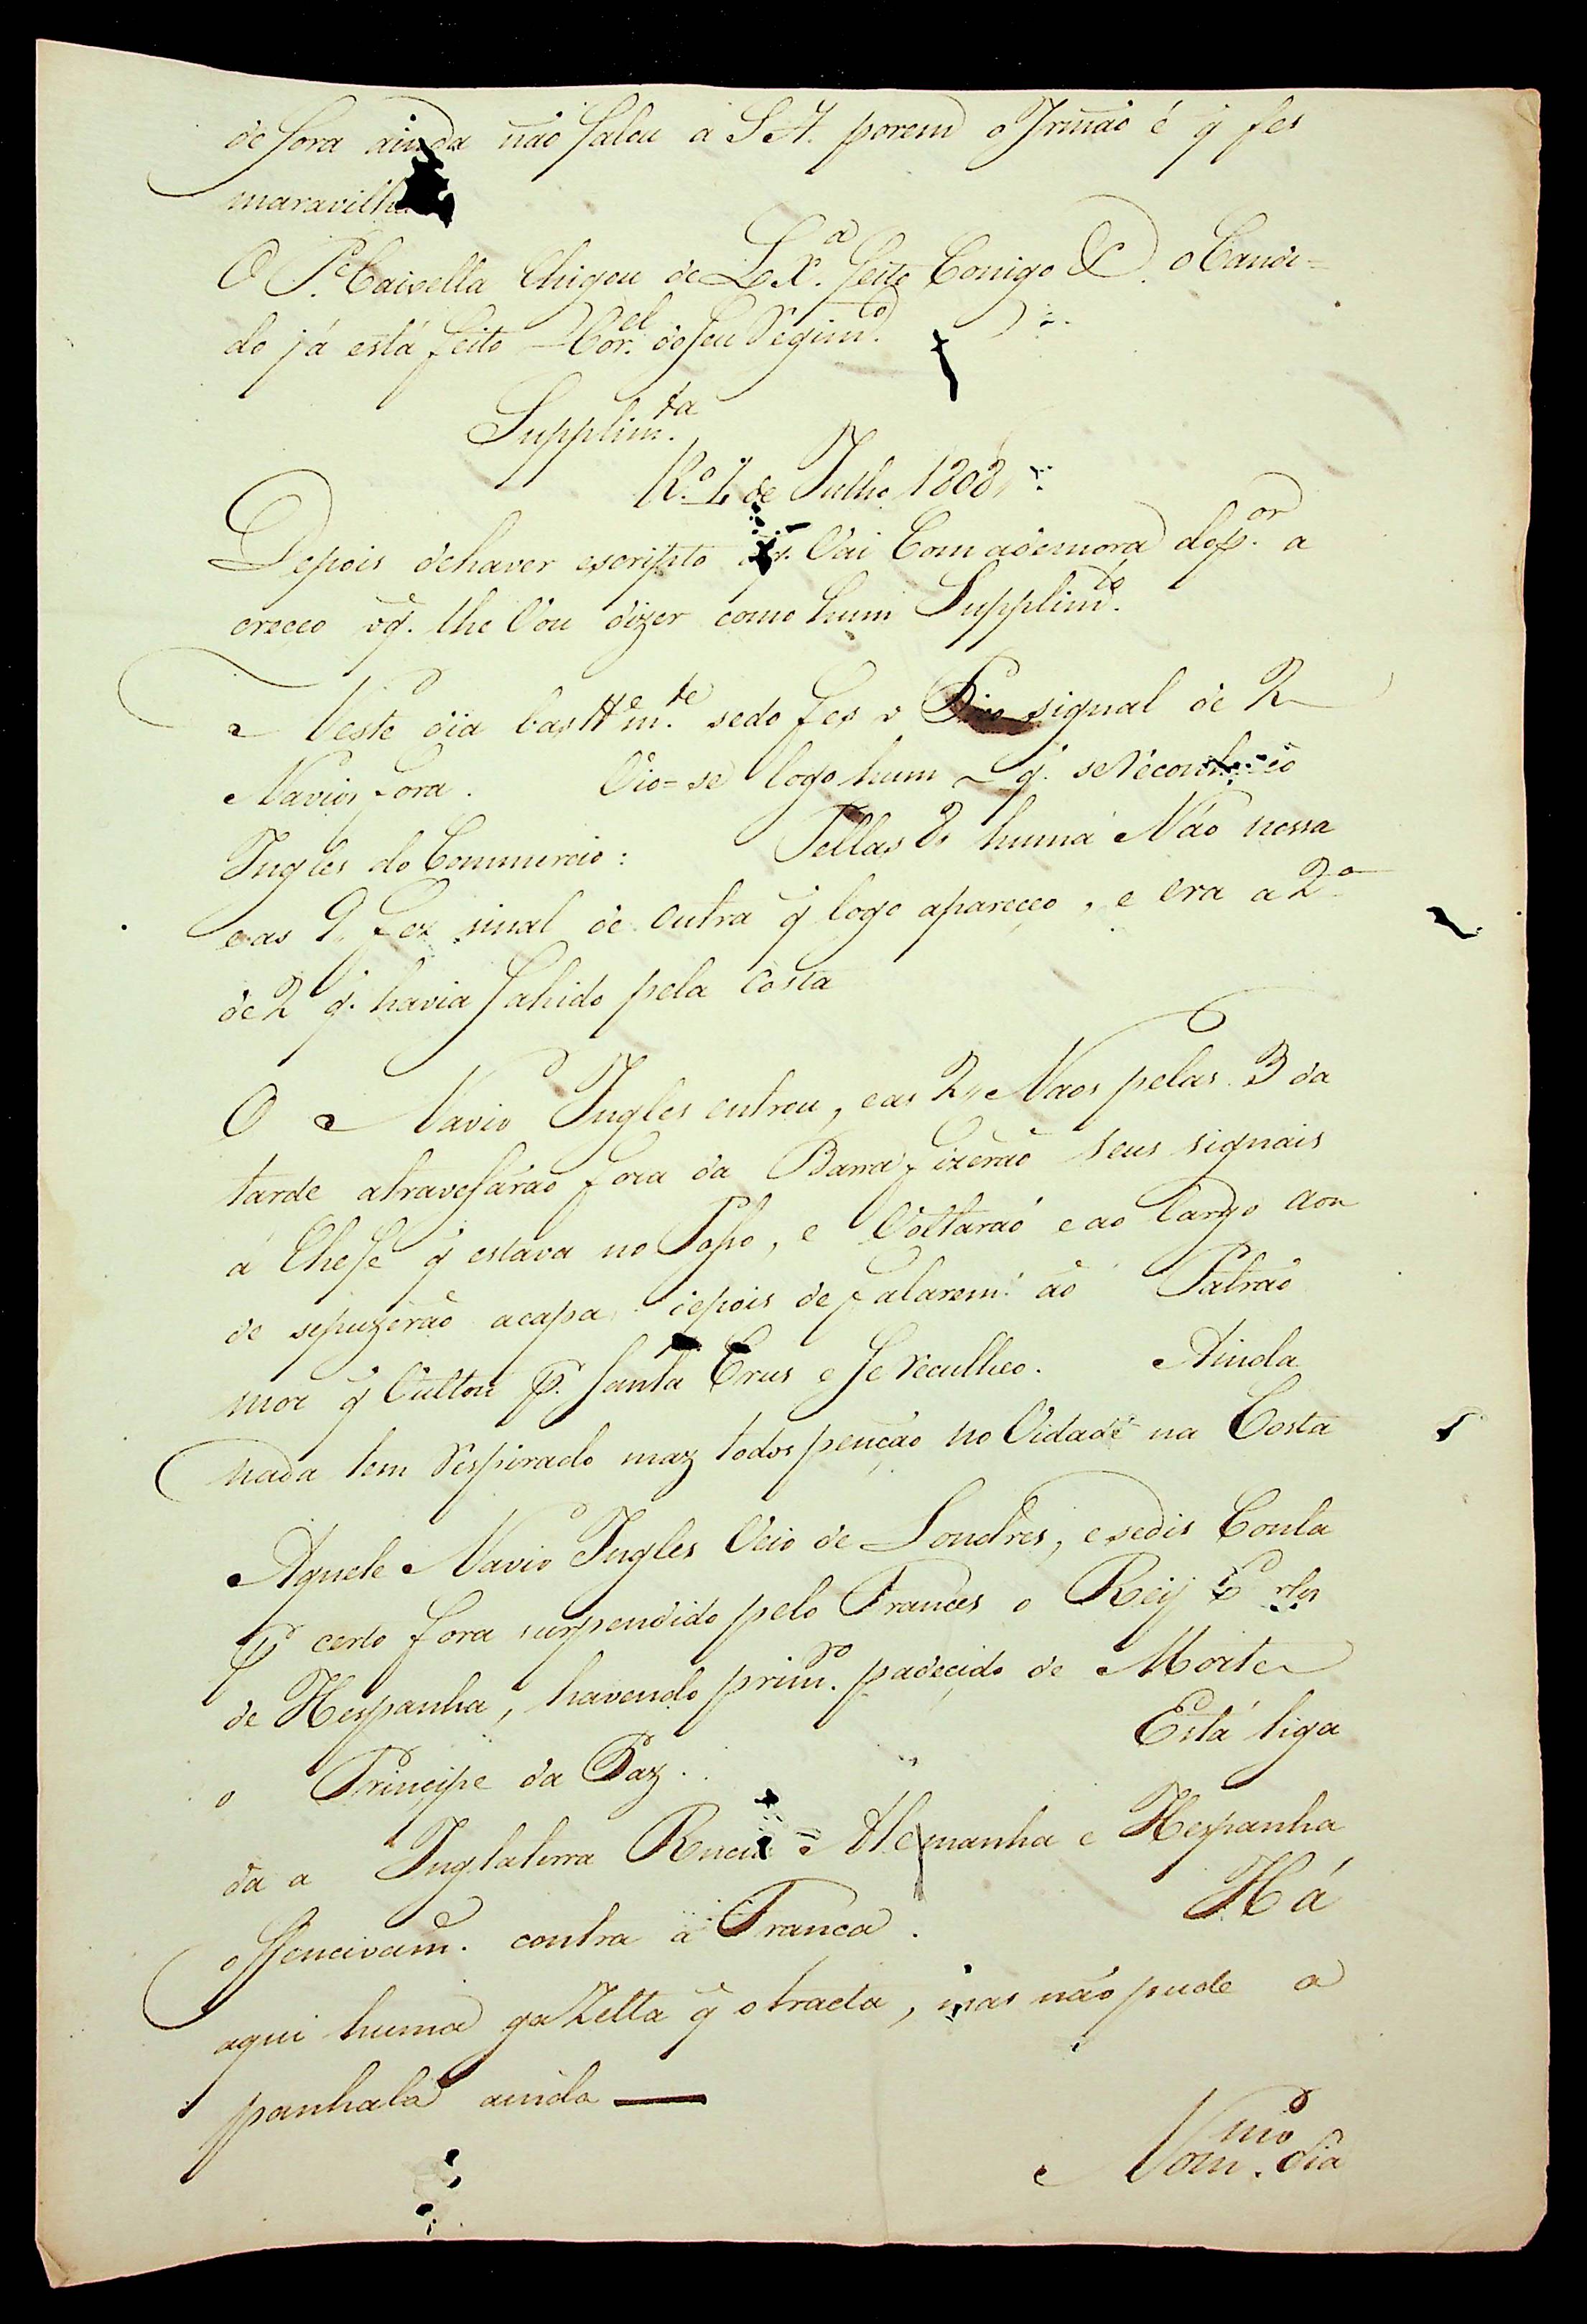 de fora ainda não falou a S A. porem o Irmão é q̃ fes
maravilh
O P.e Caisella Chigou de Lx.a feito Conigo &. o Candi=
do já está feito Cor.el do seu Regim.to
Supplim.ta
R.o 1, de Julho 1808,,
Depois dehaver escripto Vai Com ademora dop.or a
creceo oq̃. lhe Vou dizer como hum Supplim.to
Neste dia bast.e m.te sedo fes o Pico signal de 2
Navios fora. Vio=se logo hum q̃. seReconheceo
Ingles do Commercio: Pellas 8 huma Náo nossa
eas 9, fez sinal de outra q̃ logo apareceo, e era a 2.a
de 2 q̃. havia Sahido pela Costa
O Navio Ingles entrou, eas 2,, Naos pelas 3 da
tarde atravesarão fora da Barra fizerão seus signais
á Chefe q̃ estava no Poso, e Voltaraó e ao largo aon
de sepuzerão acapa depois de falarem ão Patrão
mor q̃ Vultou p.a Santa Crus e se Reculheo. Ainda
nada tem Respirado maz todos penção no Vidade na Costa
Aquele Navio Ingles Veio de Londres, esedis Conta
P.r certo fora surpendido pelo Frances o Reÿ C rlos
de Hespanha, havendo prim.ro padecido de Morte
o Principe da Paz. Está liga
da a Inglaterra Rucia e Alemanha e Hespanha
offencivam.e contra a Franca. Há
aqui huma gaZetta q̃ o tracta, mas não pude a
panhala ainda —
Nom.mo dia